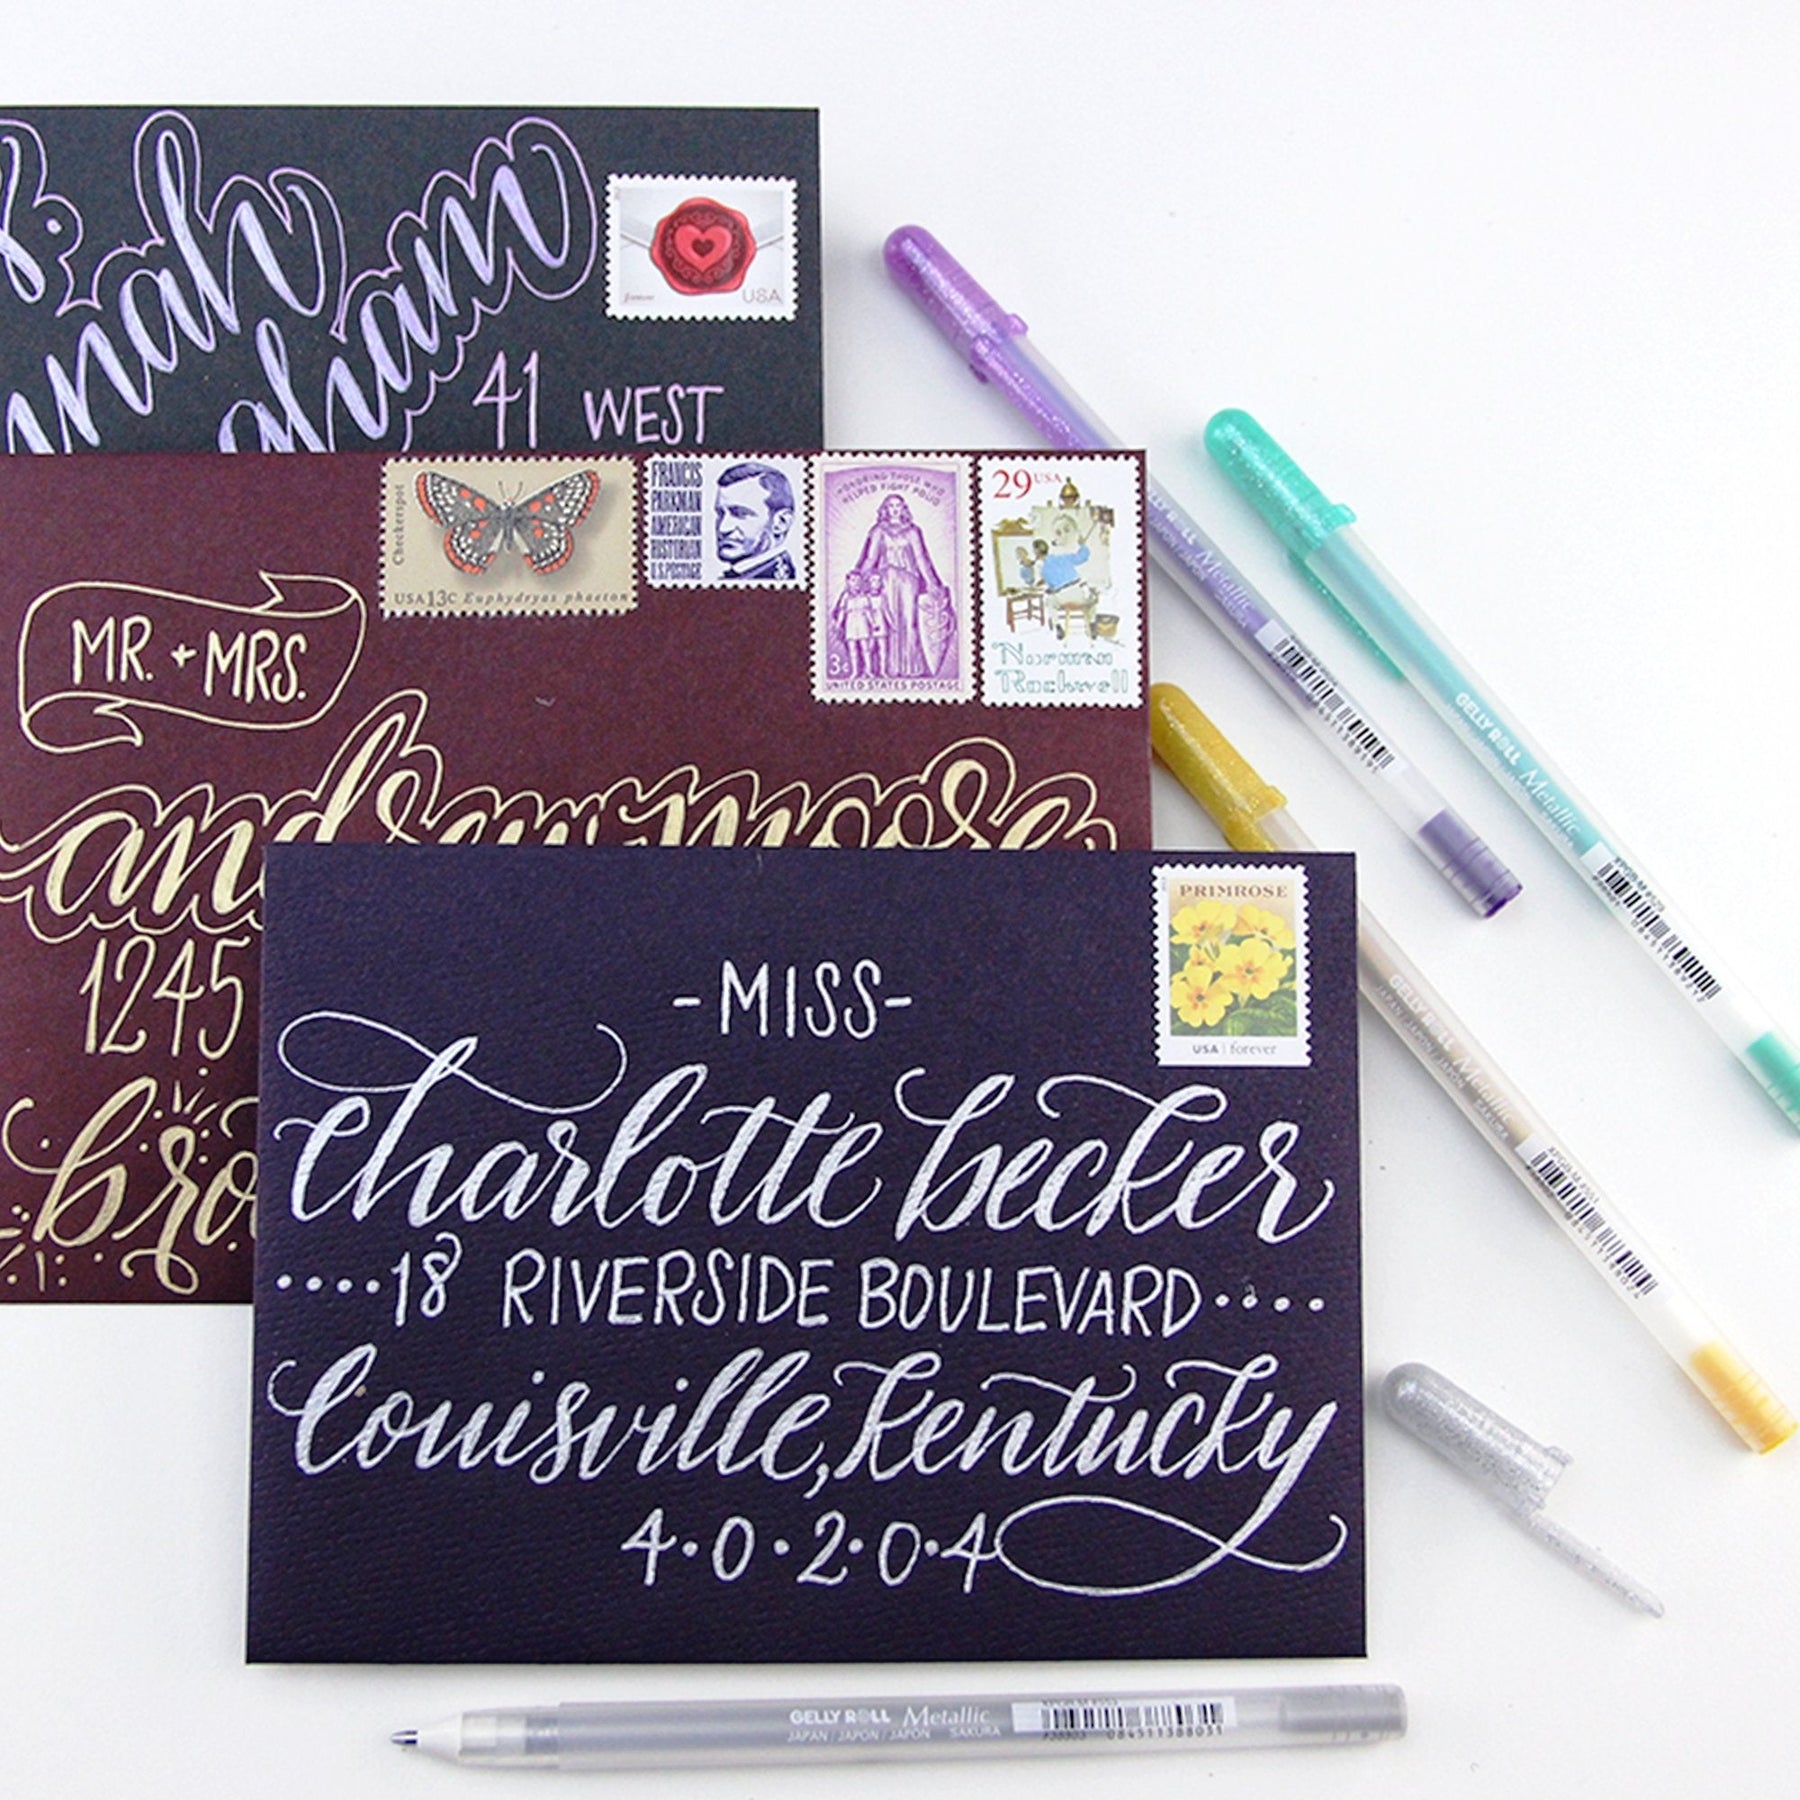 s.
nnah
aham
forever
USA
41 WEST
Checkerspot
USA 13C Euphydryas phaeton
FRANCIS
PARKMAN
AMERICAN
HISTORIAN
U.S. POSTAGE
HONORING THOSE WHO
HELPED FIGHT POLIO
3c
UNITED STATES POSTAGE
29 USA
Norman
Rockwell
MR. + MRS.
andrew moore
1245
bro
PRIMROSE
USA | forever
- MISS -
Charlotte becker
....18 RIVERSIDE BOULEVARD....
Louisville, Kentucky
4.0.2.0.4
GELLY ROLL Metallic
JAPAN / JAPON / JAPÓN SAKURA
084511388031
GELLY ROLL Metallic
GELLY ROLL Metallic
SAKURA
Metallic